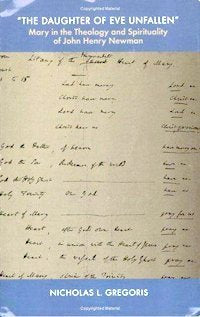 Copyrighted Material
"THE DAUGHTER OF EVE UNFALLEN"
Mary in the Theology and Spirituality
of John Henry Newman
Litany of the Heart of Mary
Lord have mercy Lord
Christ have mercy Christ
Lord have mercy Lord
Christ hear us Christ
God the Father of heaven have mercy on
God the Son, Redeemer of the world have
God the Holy Ghost have
Holy Trinity One God have
Heart of Mary pray for us
Heart, pray
Heart, in union with the Heart of Jesus pray
Heart, the vessel of the Holy Ghost pray
Heart of Mary, shrine of the Trinity pray
NICHOLAS L. GREGORIS
Copyrighted Material